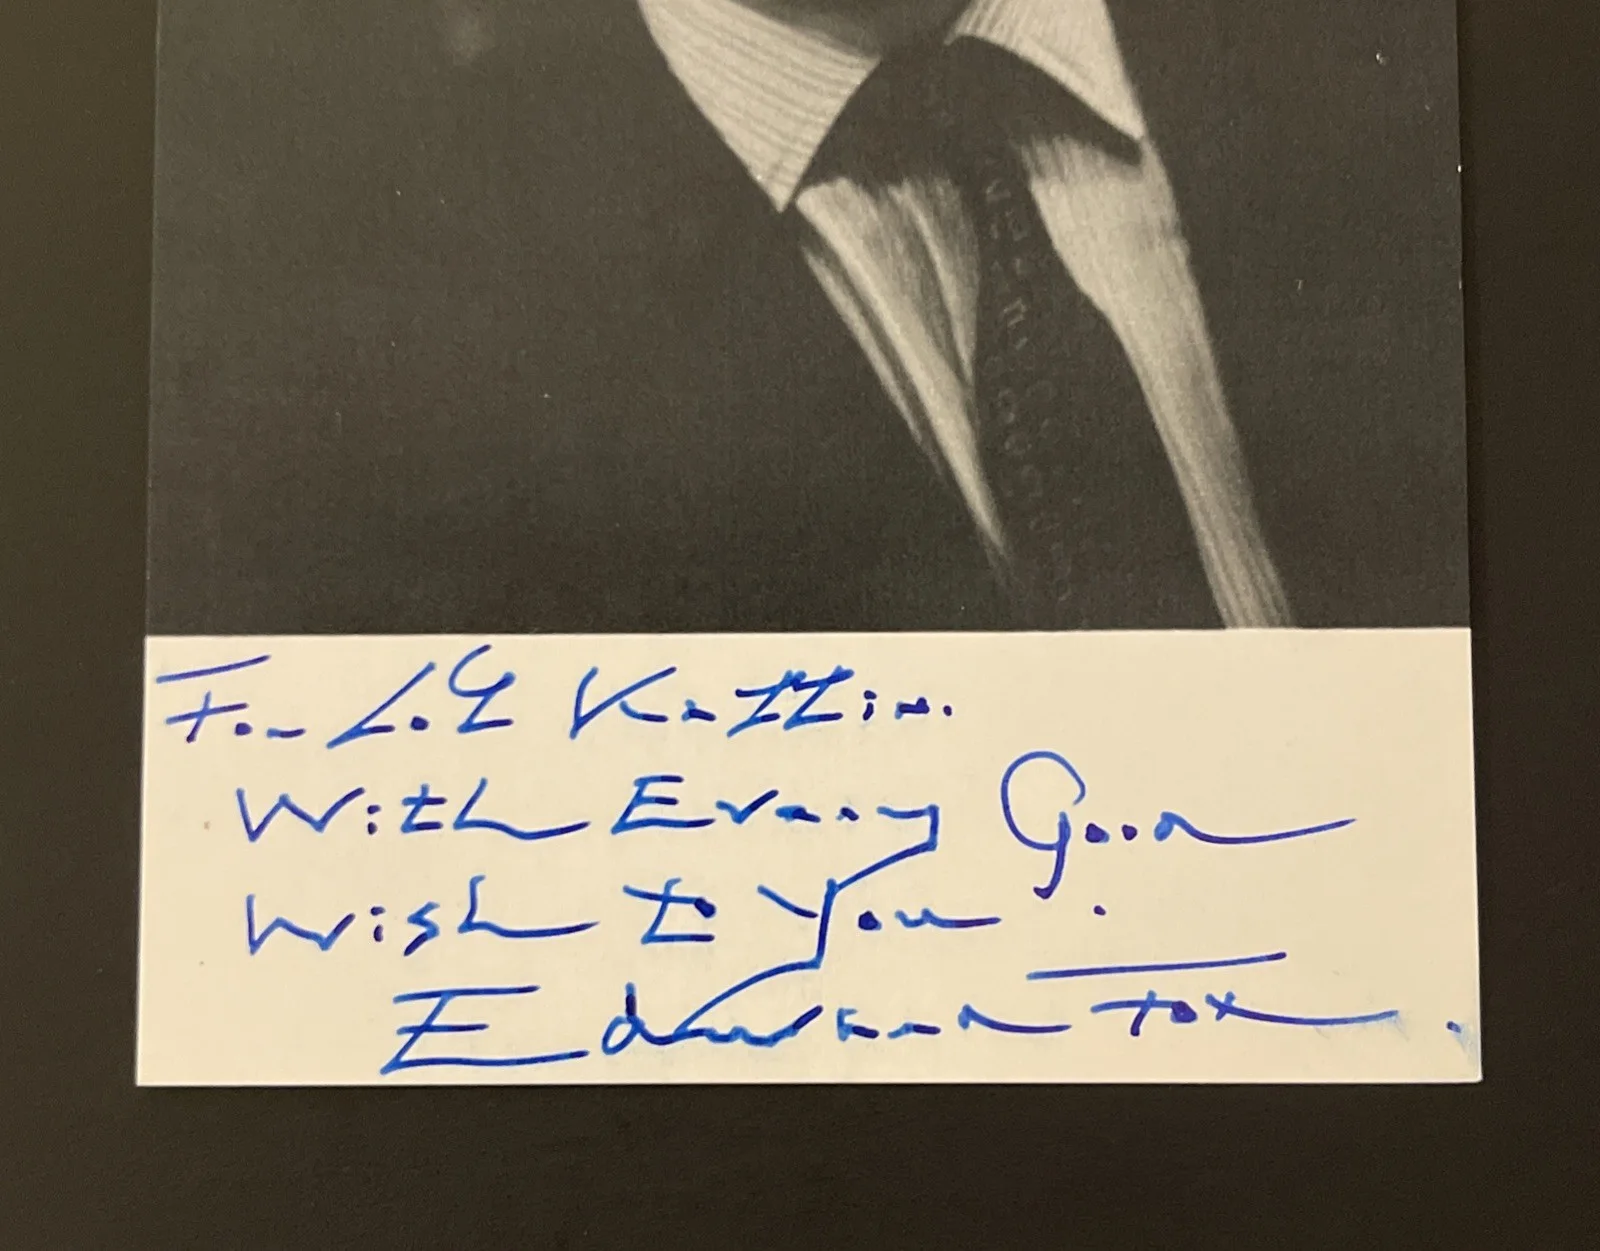 For Kattin.
With Every Good
Wish to You.
Edward Fox.